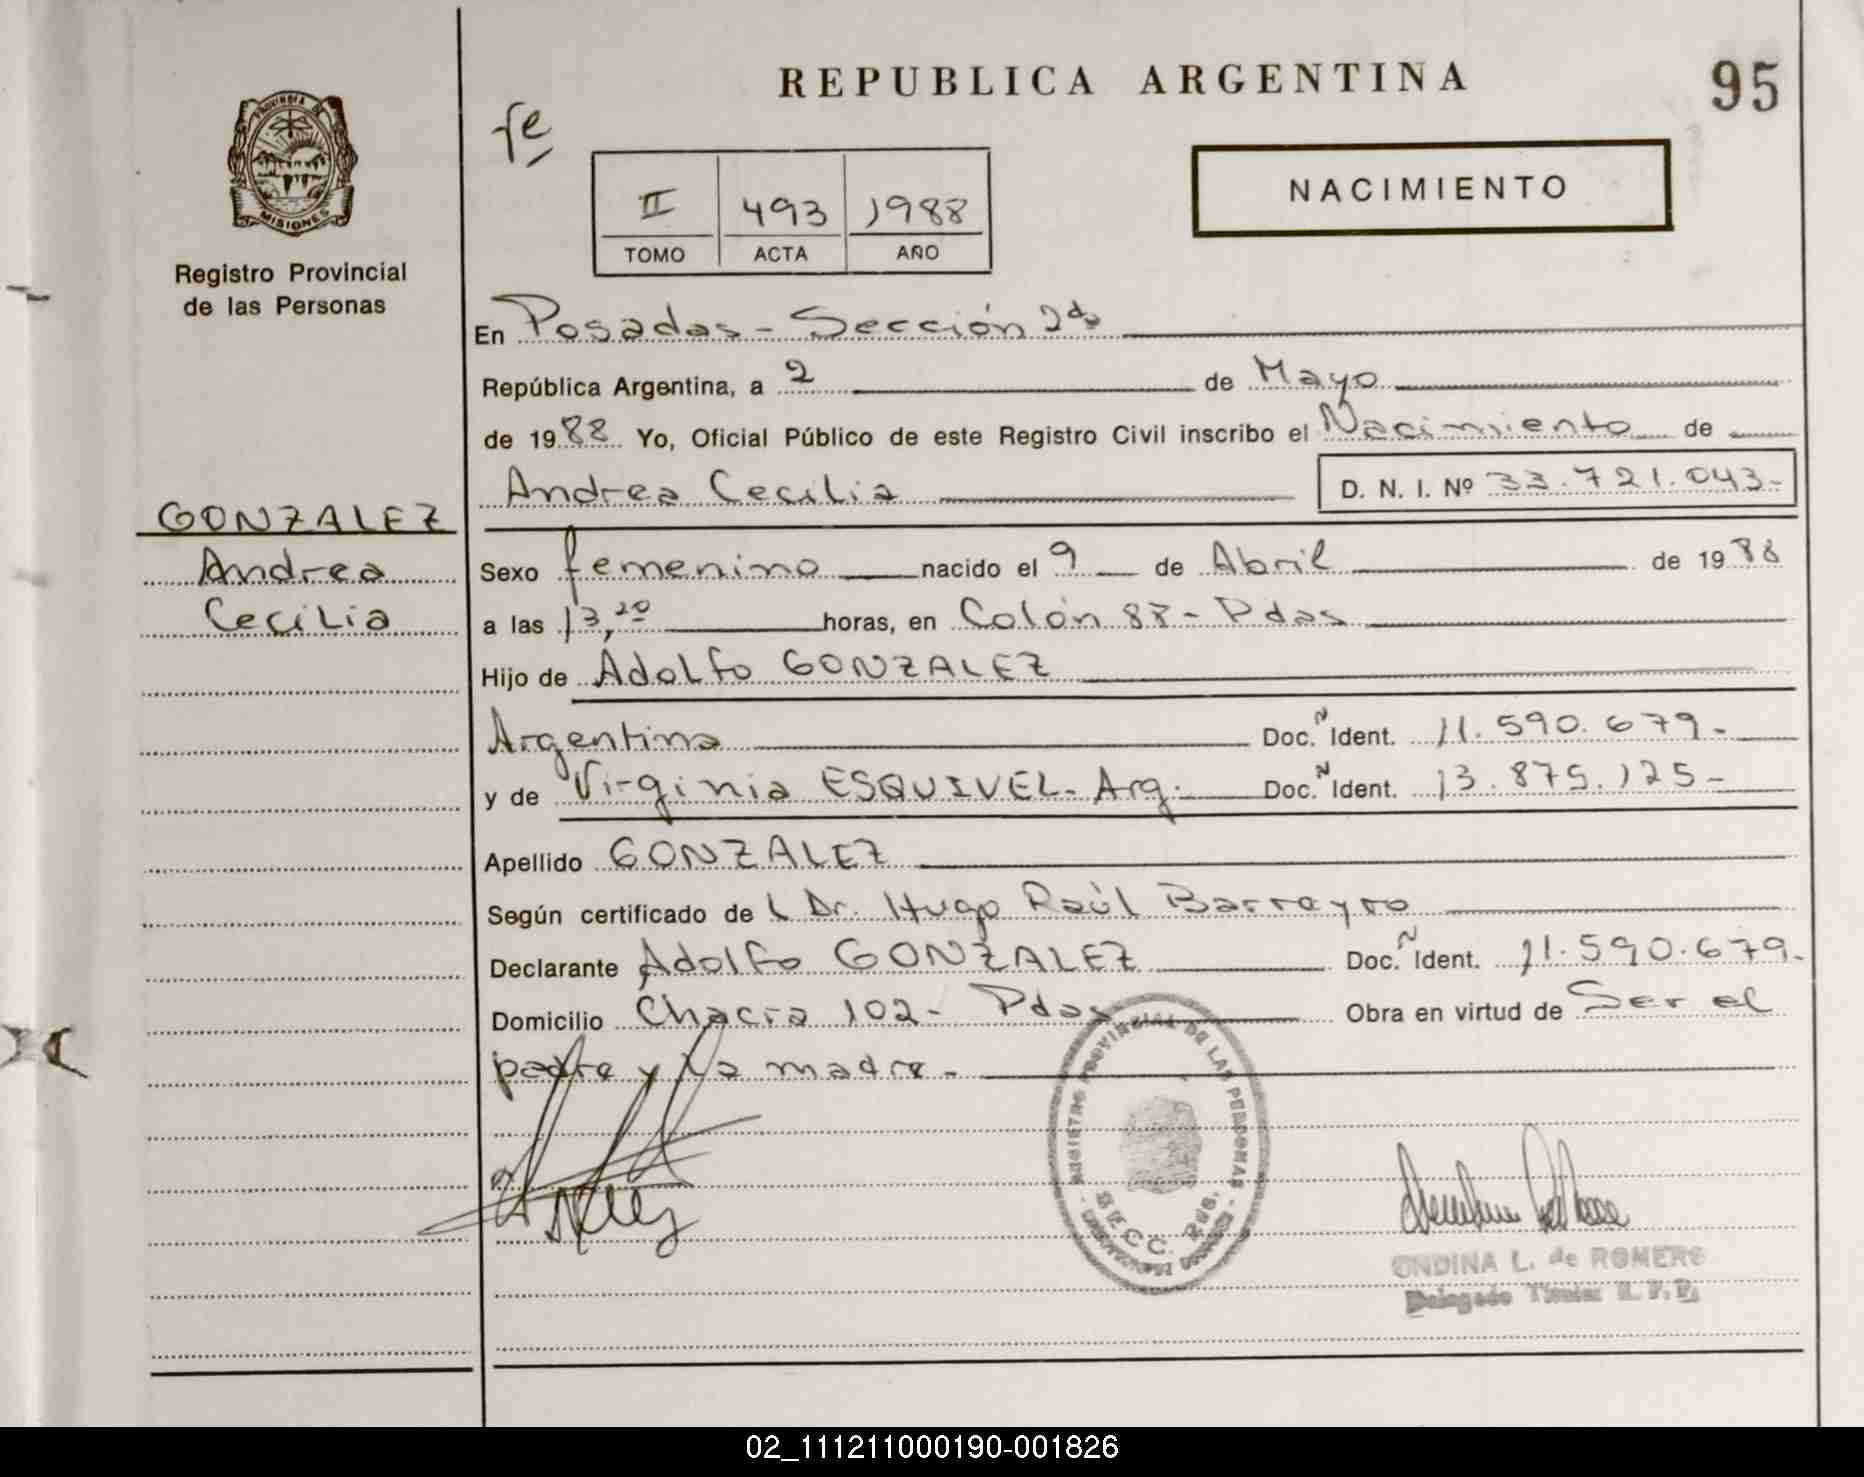 REPUBLICA ARGENTINA
95
PROVINCIA DE
MISIONES
Registro Provincial
de las Personas
NACIMIENTO
II 493 1988
TOMO ACTA AÑO
En Posadas - Sección 2da
República Argentina, a 2 de Mayo
de 1988 Yo, Oficial Público de este Registro Civil inscribo el Nacimiento de
Andrea Cecilia D. N. I. Nº 33.721.043-
GONZALEZ
Andrea
Cecilia
Sexo femenino nacido el 9 de Abril de 1988
a las 13,20 horas, en Colón 87 - Pdas
Hijo de Adolfo GONZALEZ
Argentina Doc. N Ident. 11.590.679-
y de Virginia ESQUIVEL - Arg. Doc. N Ident. 13.875.125-
Apellido GONZALEZ
Según certificado de l Dr. Hugo Raúl Barreyro
Declarante Adolfo GONZALEZ Doc. N Ident. 11.590.679-
Domicilio Chacra 102 - Pdas Obra en virtud de Ser el
padre y la madre -
REGISTRO PROVINCIAL DE LAS PERSONAS
SECC. 2da.
ONDINA L. de ROMERO
Delegado Titular R. P. P.
02_111211000190-001826